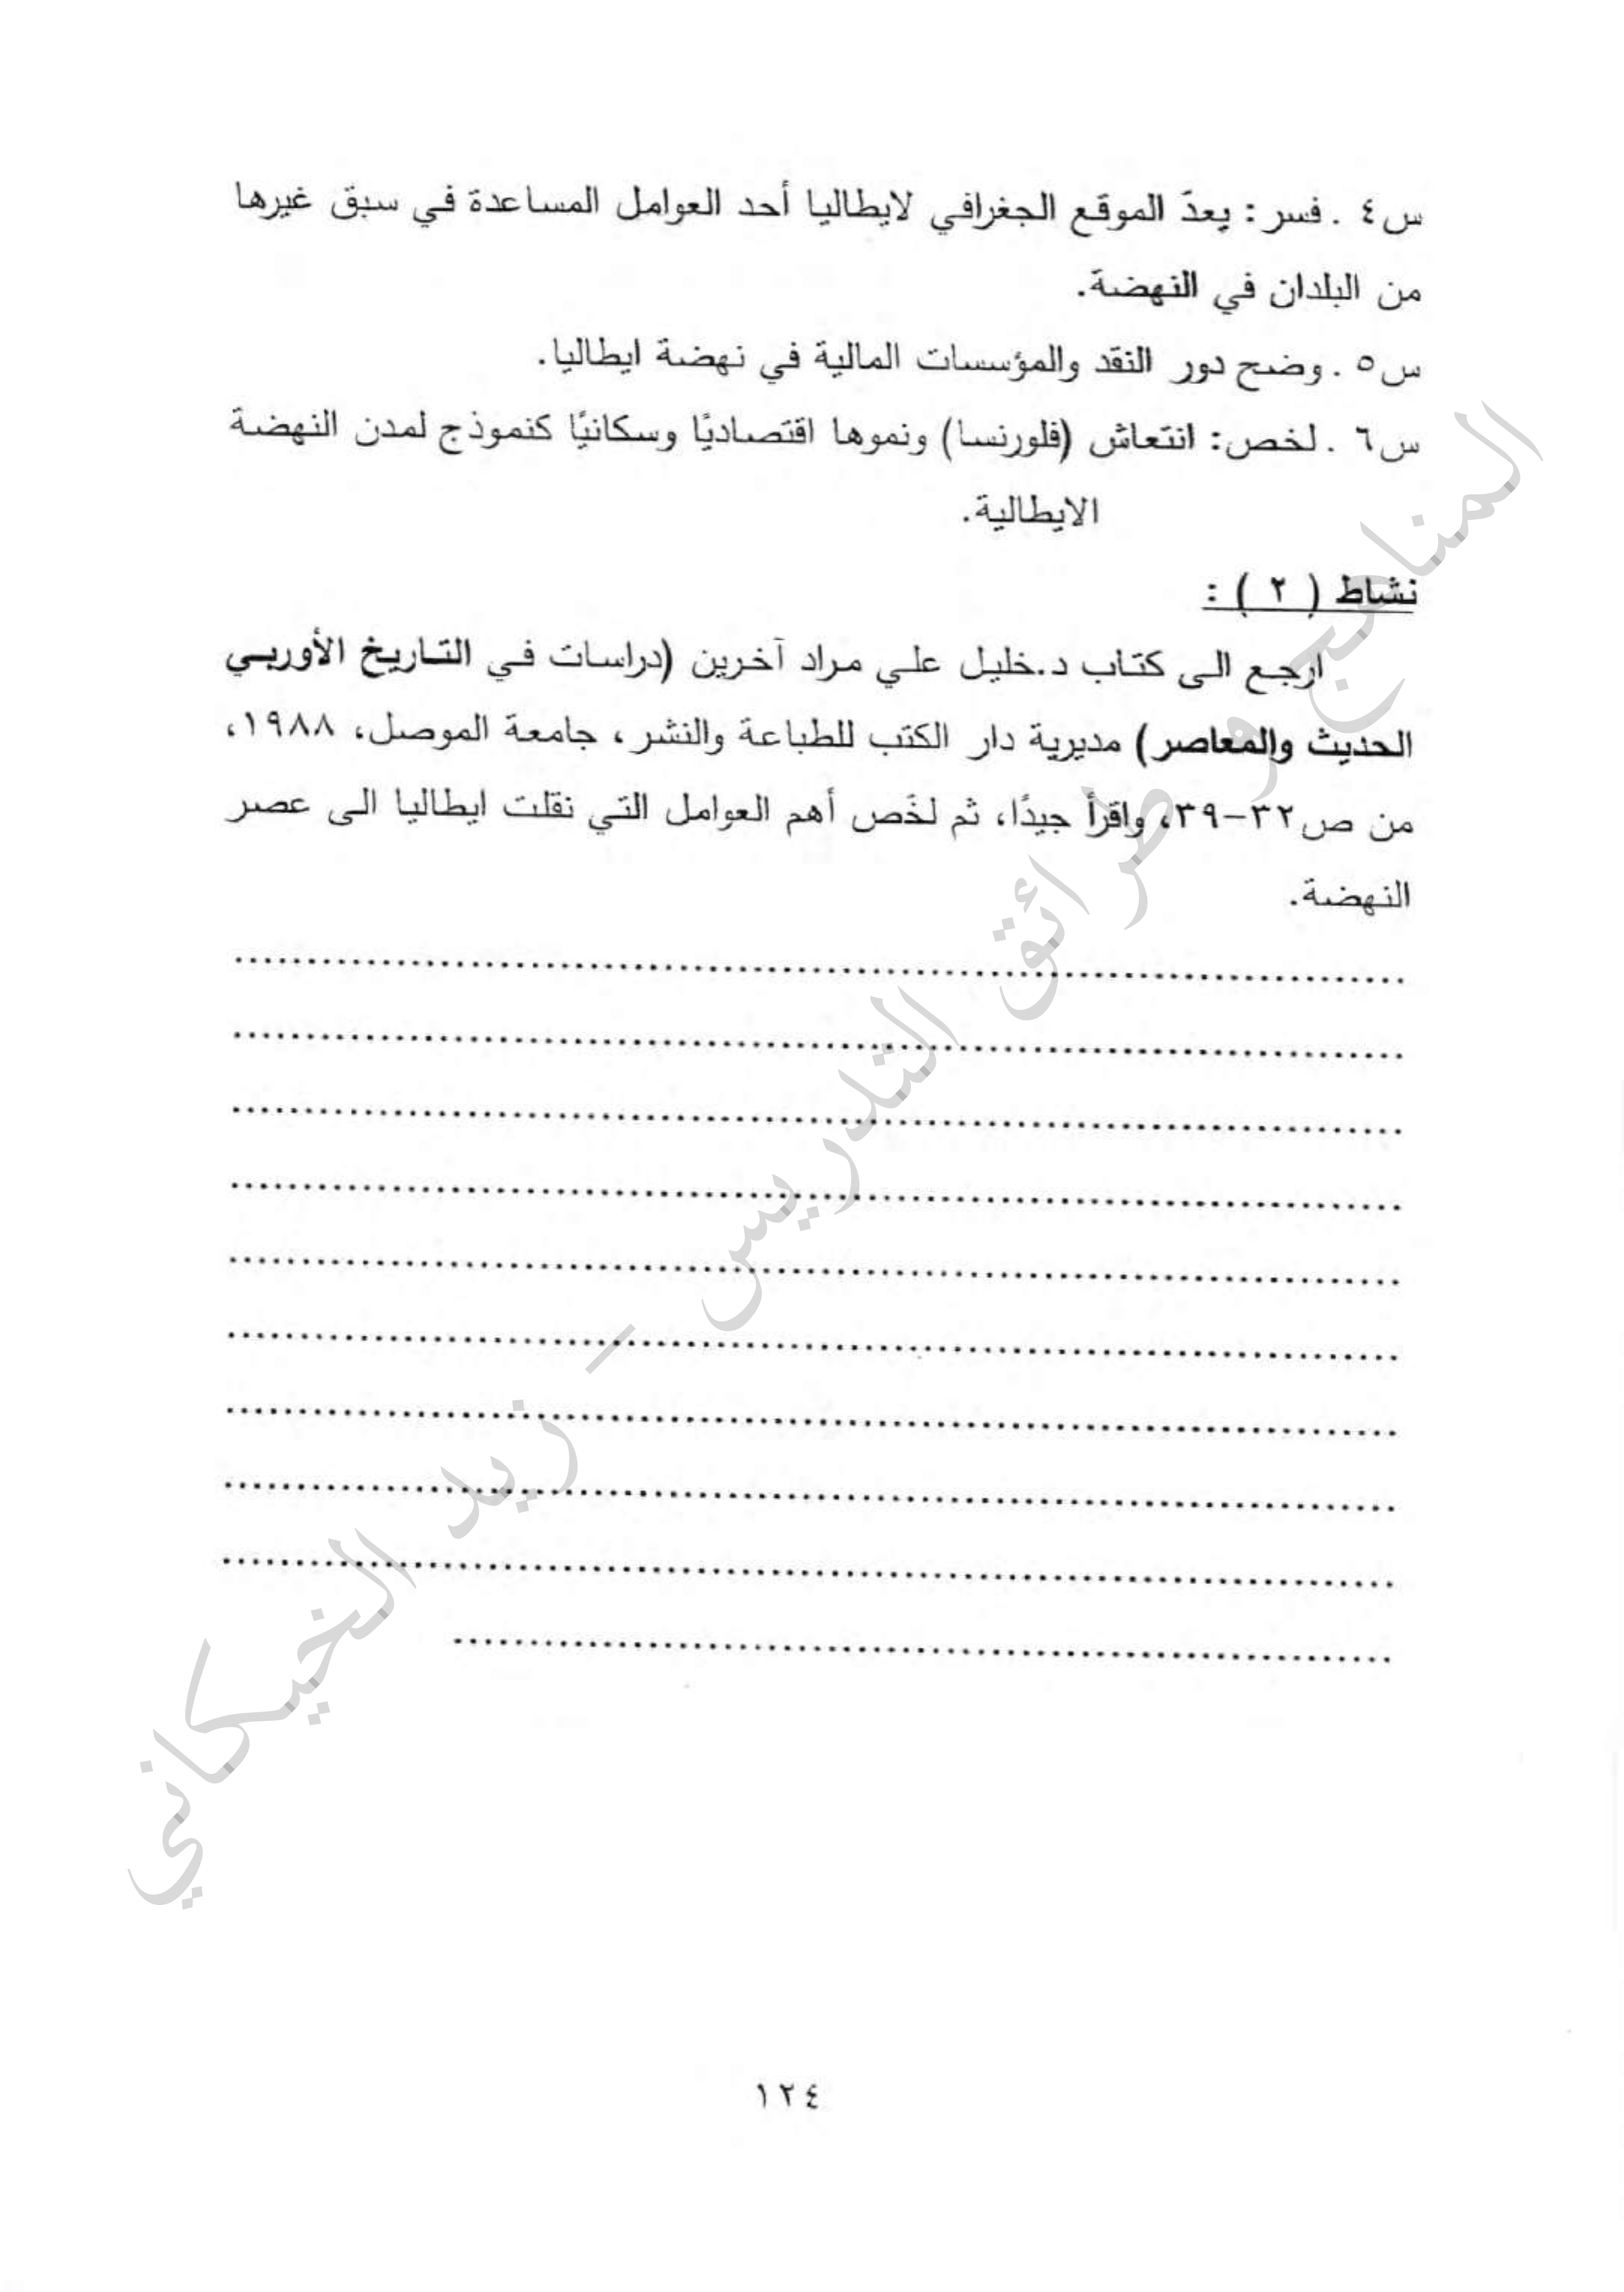 س٤ . فسر: يعدّ الموقع الجغرافي لايطاليا أحد العوامل المساعدة في سبق غيرها
من البلدان في النهضة.
س٥ . وضح دور النقد والمؤسسات المالية في نهضة ايطاليا.
س٦ . لخص: انتعاش (فلورنسا) ونموها اقتصاديًا وسكانيًا كنموذج لمدن النهضة
الايطالية.
نشاط ( ٢ ) :
ارجع الى كتاب د.خليل علي مراد آخرين (دراسات في التاريخ الأوربي
الحديث والمعاصر) مديرية دار الكتب للطباعة والنشر، جامعة الموصل، ١٩٨٨،
من ص٣٢-٣٩، واقرأ جيدًا، ثم لخّص أهم العوامل التي نقلت ايطاليا الى عصر
النهضة.
المناهج و طرائق التدريس - زيد الخيكاني
١٢٤